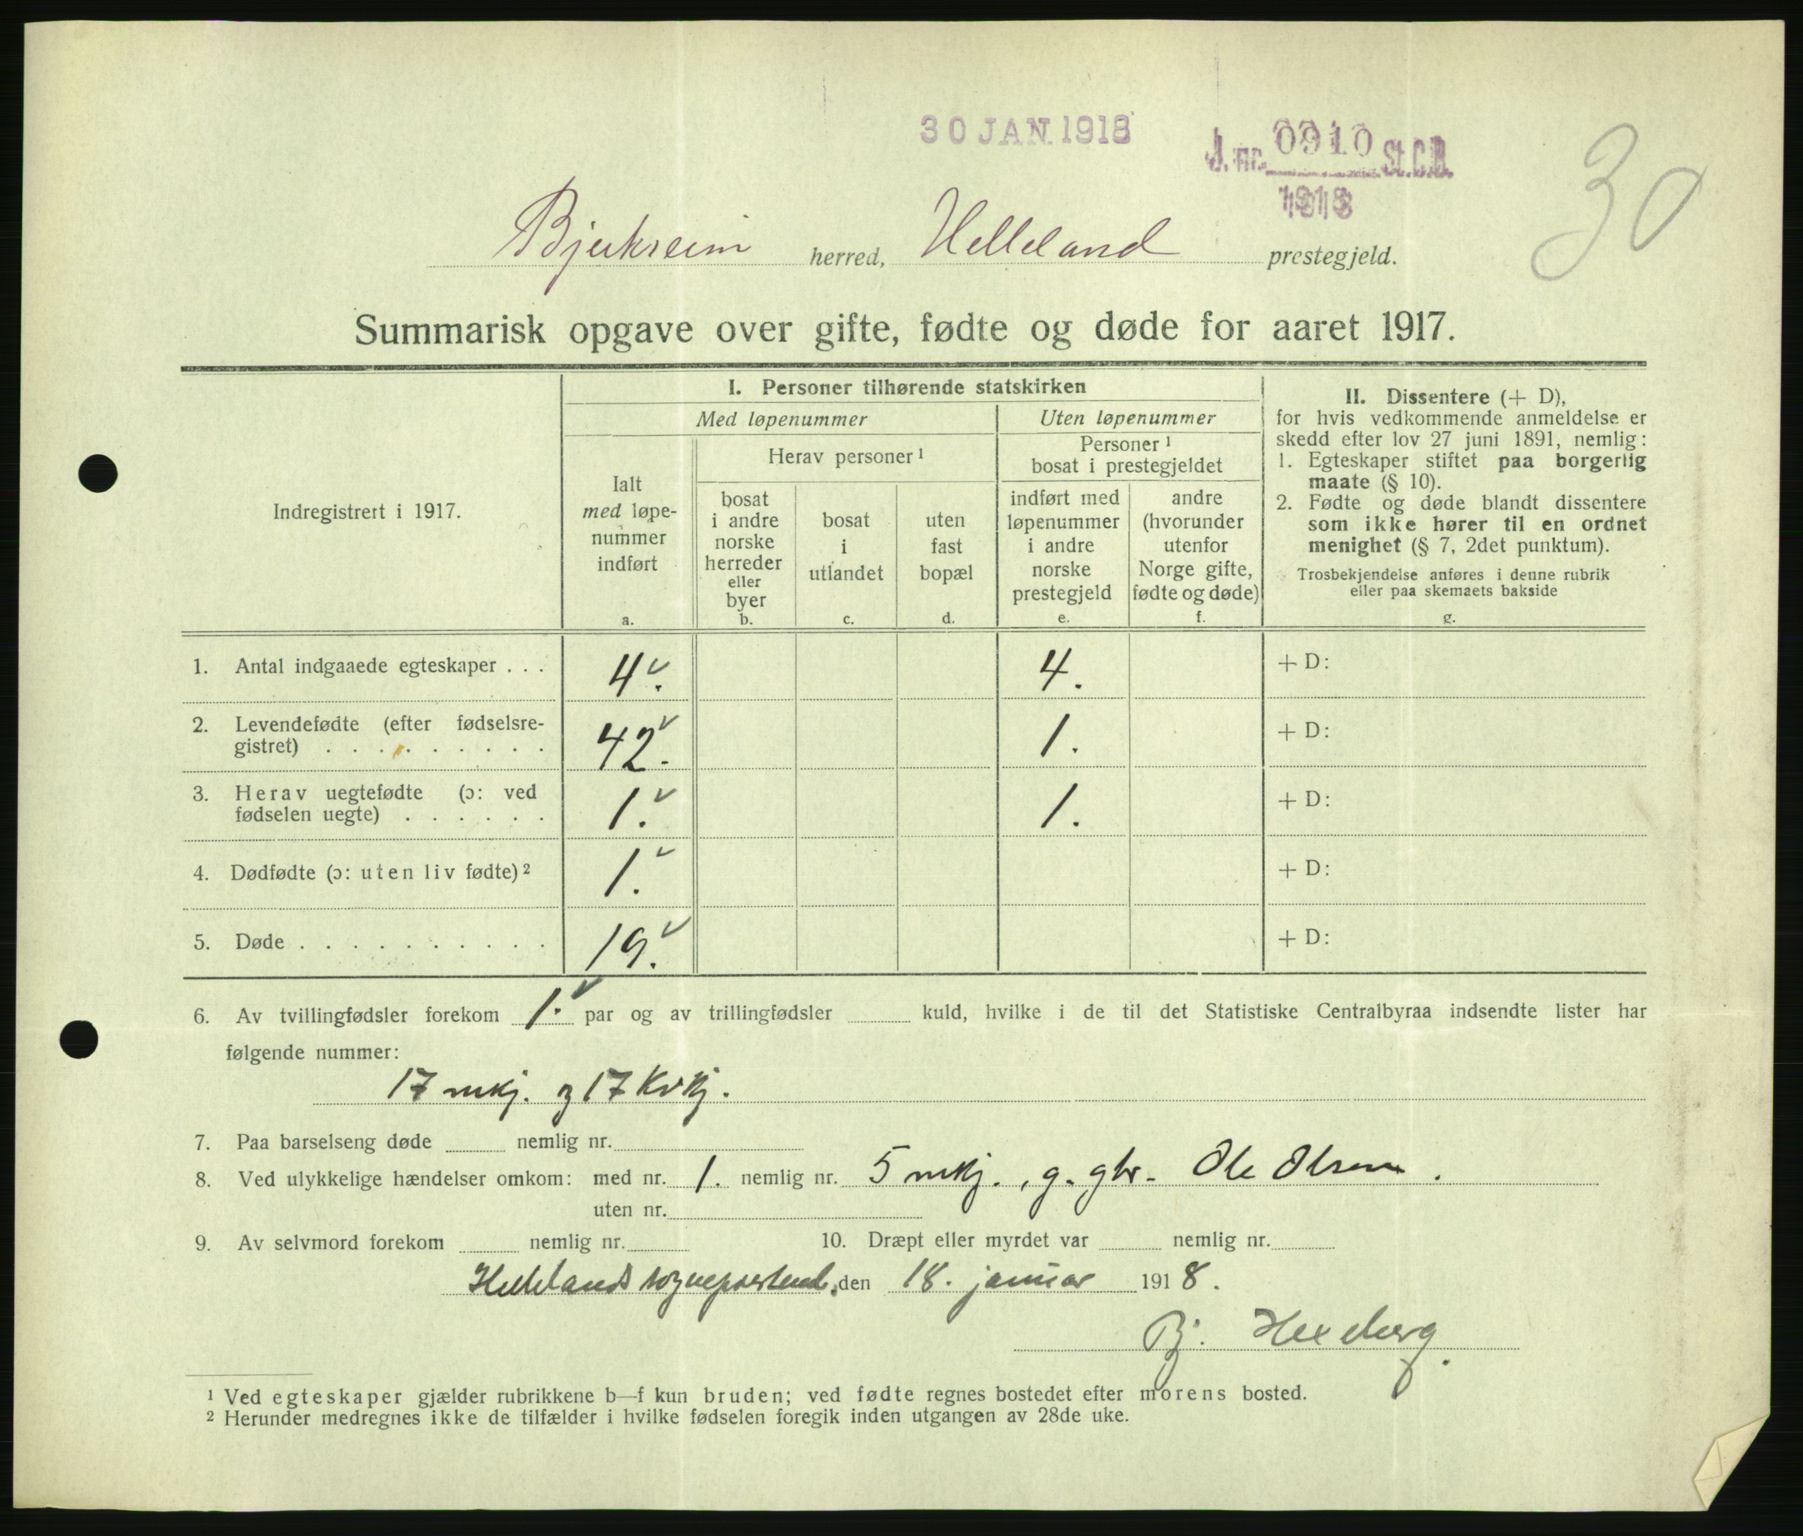 30 JAN. 1918
J. nr. 0910 St.C.B.
1918
30
Bjerkreim herred, Helleland prestegjeld.
Summarisk opgave over gifte, fødte og døde for aaret 1917.
Indregistrert i 1917.
I. Personer tilhørende statskirken
Med løpenummer
Uten løpenummer
Ialt
med løpe-
nummer
indført
a.
Herav personer ¹
bosat
i andre
norske
herreder
eller
byer
b.
bosat
i
utlandet
c.
uten
fast
bopæl
d.
Personer ¹
bosat i prestegjeldet
indført med
løpenummer
i andre
norske
prestegjeld
e.
andre
(hvorunder
utenfor
Norge gifte,
fødte og døde)
f.
II. Dissentere (+ D),
for hvis vedkommende anmeldelse er
skedd efter lov 27 juni 1891, nemlig:
1. Egteskaper stiftet paa borgerlig
maate (§ 10).
2. Fødte og døde blandt dissentere
som ikke hører til en ordnet
menighet (§ 7, 2det punktum).
Trosbekjendelse anføres i denne rubrik
eller paa skemaets bakside
g.
1. Antal indgaaede egteskaper . . . 4. 4. + D:
2. Levendefødte (efter fødselsre-
gistret) . . . . . . . . . 42. 1. + D:
3. Herav uegtefødte (ɔ: ved
fødselen uegte) . . . . . . 1. 1. + D:
4. Dødfødte (ɔ: uten liv fødte) ² 1. + D:
5. Døde . . . . . . . . . . 19. + D:
6. Av tvillingfødsler forekom 1. par og av trillingfødsler kuld, hvilke i de til det Statistiske Centralbyraa indsendte lister har
følgende nummer:
17 mkj. og 17 Kvkj.
7. Paa barselseng døde nemlig nr.
8. Ved ulykkelige hændelser omkom: med nr. 1. nemlig nr. 5 mkj., g. gbr. Ole Olsen.
uten nr.
9. Av selvmord forekom nemlig nr. 10. Dræpt eller myrdet var nemlig nr.
Hellelands sogneprestend., den 18. januar 1918.
Bj.
¹ Ved egteskaper gjælder rubrikkene b—f kun bruden; ved fødte regnes bostedet efter morens bosted.
² Herunder medregnes ikke de tilfælder i hvilke fødselen foregik inden utgangen av 28de uke.